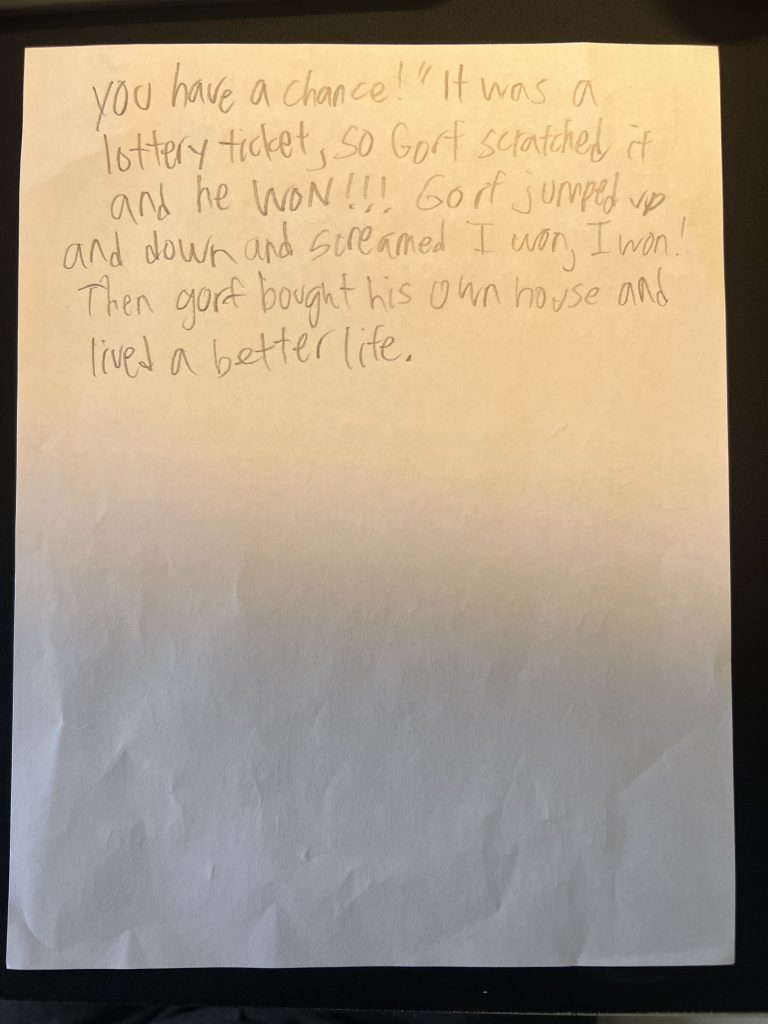 you have a chance!" It was a
lottery ticket, so Gorf scratched it
and he WON!!! Gorf jumped up
and down and screamed I won, I won!
Then gorf bought his own house and
lived a better life.